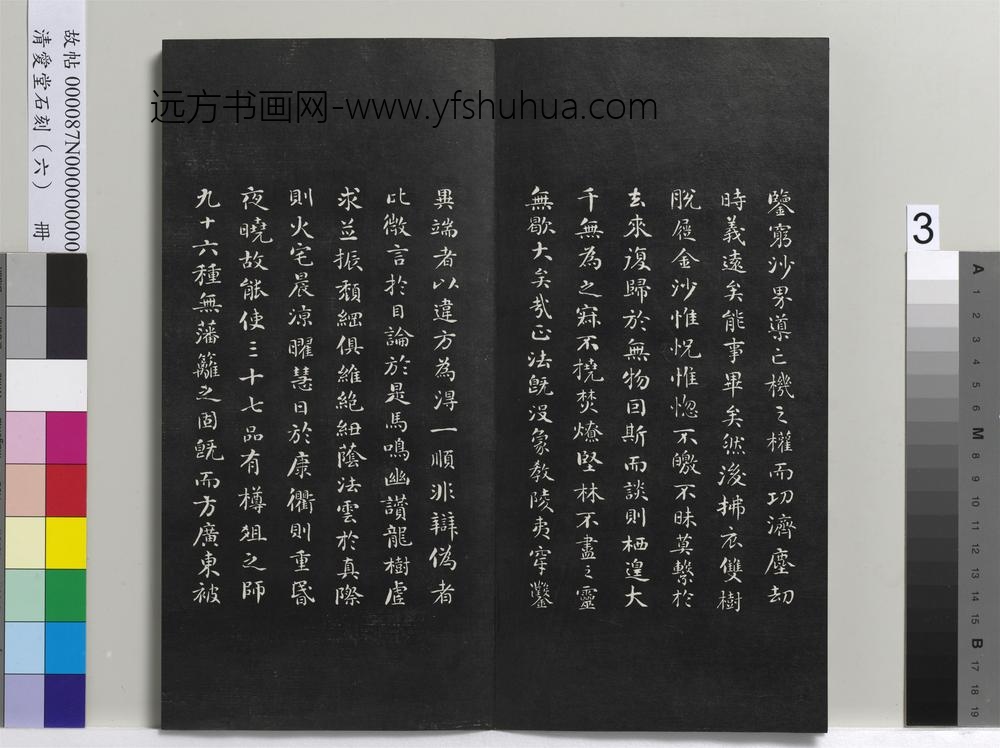 故帖 000087N000000000
清愛堂石刻(六) 冊
远方书画网-www.yfshuhua.com
鑒窮沙界導亡機之權而功濟塵劫
時義遠矣能事畢矣然後拂衣雙樹
脫屣金沙惟怳惟惚不皦不昧莫繫於
去來復歸於無物因斯而談則栖遑大
千無為之寂不撓焚燎堅林不盡之靈
無歇大矣哉正法既没象教陵夷穿鑿
異端者以違方為得一順非辯偽者
比微言於目論於是馬鳴幽讚龍樹虛
求並振頹綱俱維絕紐蔭法雲於真際
則火宅晨涼曜慧日於康衢則重昏
夜曉故能使三十七品有樽俎之師
九十六種無藩籬之固既而方廣東被
3
A
1
2
3
4
5
6
M
8
9
10
11
12
13
14
15
B
17
18
19